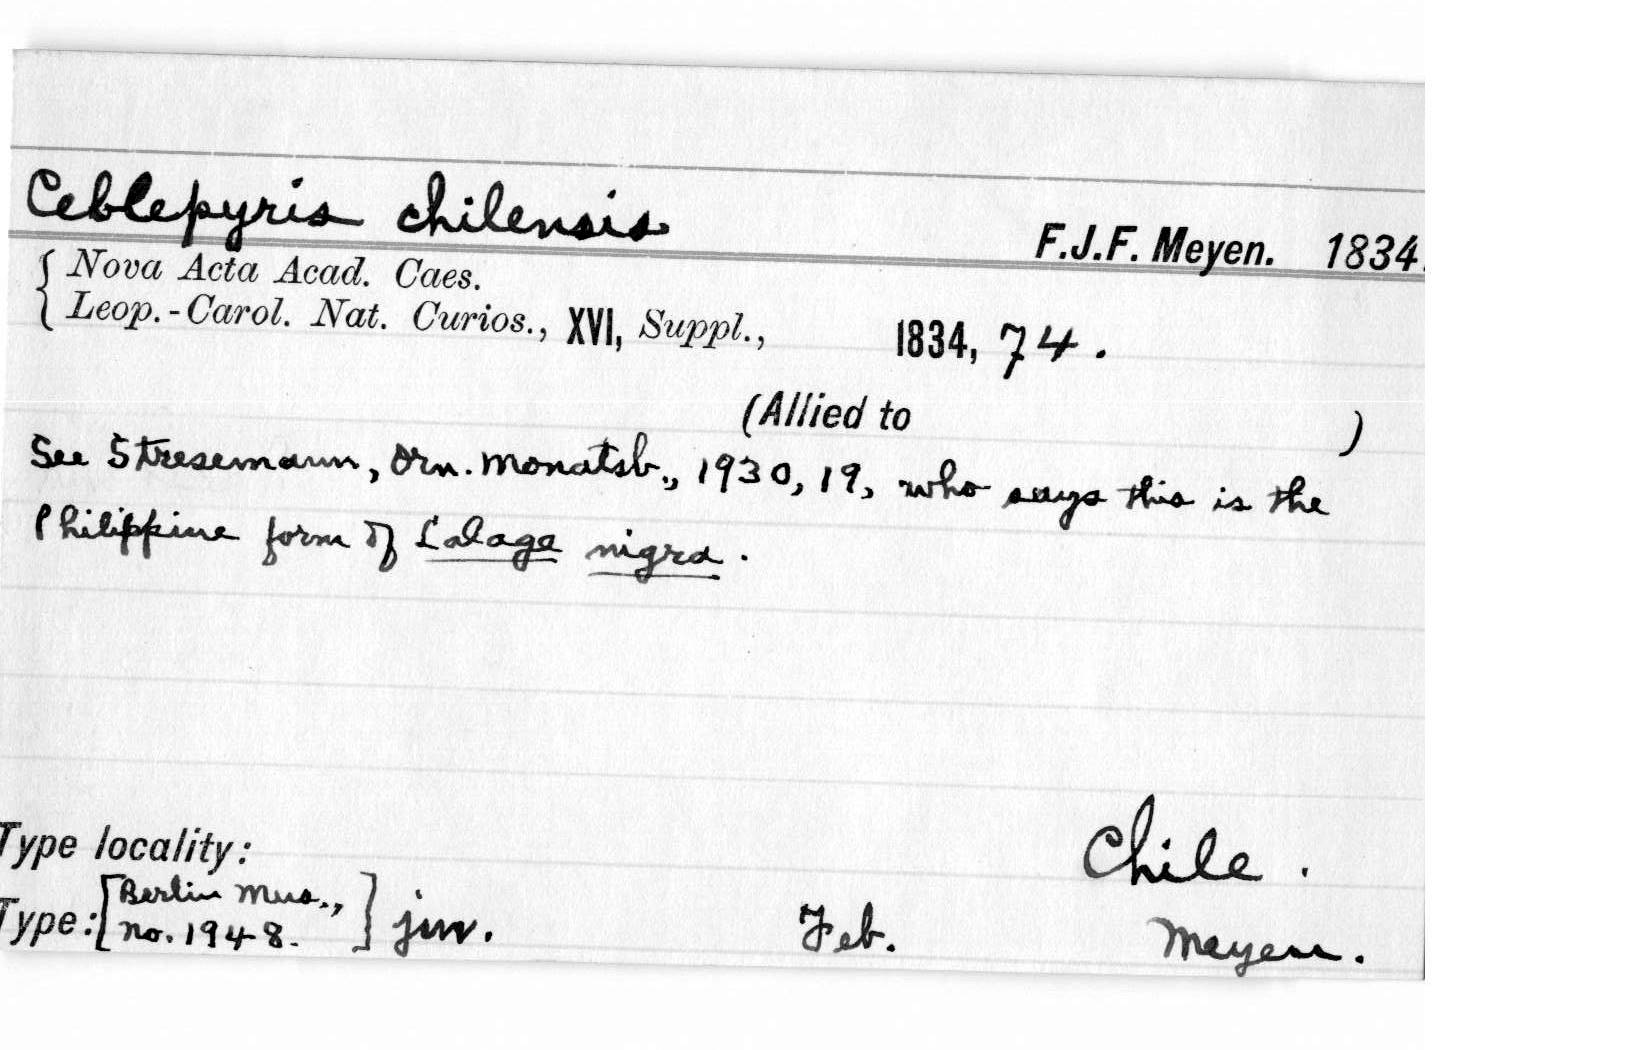 Ceblepyris chilensis F.J.F. Meyen. 1834.
Nova Acta Acad. Caes.
Leop.-Carol. Nat. Curios., XVI, Suppl., 1834, 74.
(Allied to )
See Stresemann, Orn. Monatsb., 1930, 19, who says this is the
Philippine form of Lalaga nigra.
Type locality: Chile.
Type: [Berlin Mus., no. 1948.] juv. Feb. Meyen.